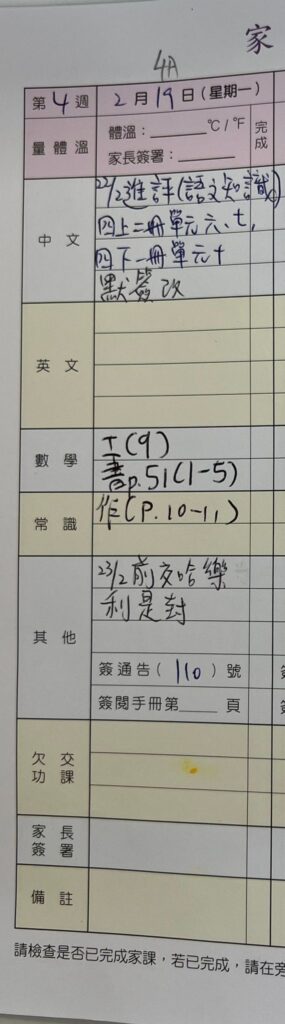 家
4A
第4週 2月19日(星期一)
量體溫 體溫：______°C/°F 完成
家長簽署：______
中文 22/23進評(語文知識)
四上二冊單元六、七,
四下一冊單元十
默簽改
英文
數學 工(9)
書p.51(1-5)
常識 作(P.10-11)
其他 23/2前交哈樂
利是封
簽通告(110)號
簽閱手冊第____頁
欠交功課
家長簽署
備註
請檢查是否已完成家課，若已完成，請在旁